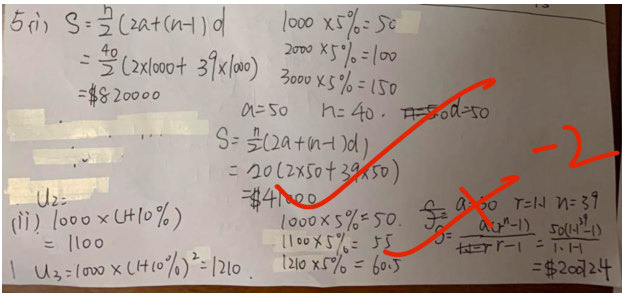 5(i) S = n/2 (2a+(n-1)d
= 40/2 (2×1000 + 39×1000)
= $820000
1000 × 5% = 50
2000 × 5% = 100
3000 × 5% = 150
a=50 n=40. d=50
S = n/2 (2a+(n-1)d)
= 20(2×50+39×50)
= $41000
-2
U2=
(ii) 1000 × (1+10%)
= 1100
U3=1000×(1+10%)²=1210
1000 × 5% = 50.
1100×5% = 55
1210 ×5% = 60.5
a=50 r=1.1 n=39
S= a(r^n-1)/r-1 = 50(1.1^39-1)/1.1-1
= $20072.4